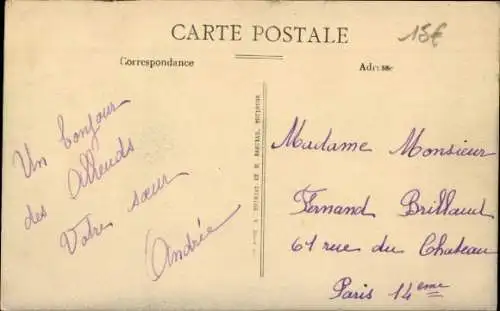 CARTE POSTALE
15€
Correspondance
Adresse
Un bonjour
des
Votre sœur
Andrée
Madame Monsieur
Fernand Brillaud
61 rue du Chateau
Paris 14eme